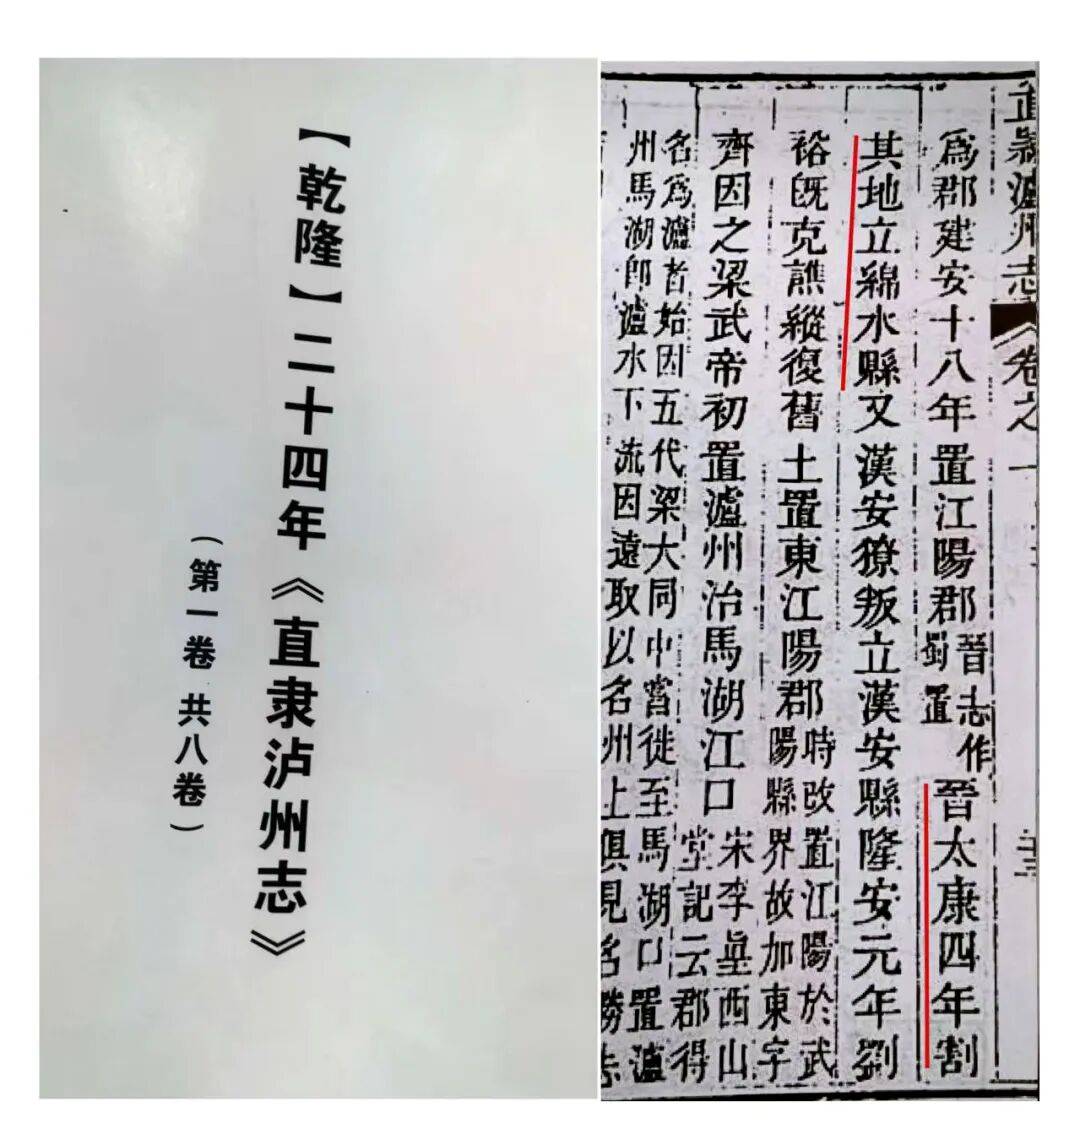 【乾隆】二十四年《直隶泸州志》
（第一卷 共八卷）
直隸瀘州志 卷之一
爲郡建安十八年置江陽郡
晉志作
蜀置
晉太康四年割
其地立綿水縣又漢安獠叛立漢安縣隆安元年劉
裕旣克譙縱復舊土置東江陽郡
時改置江陽於武
陽縣界故加東字
齊因之梁武帝初置瀘州治馬湖江口
宋李西山
堂記云郡得
名爲瀘者始因五代梁大同中嘗徙至馬湖口置瀘
州馬湖卽瀘水下流因遠取以名州上俱見名勝志